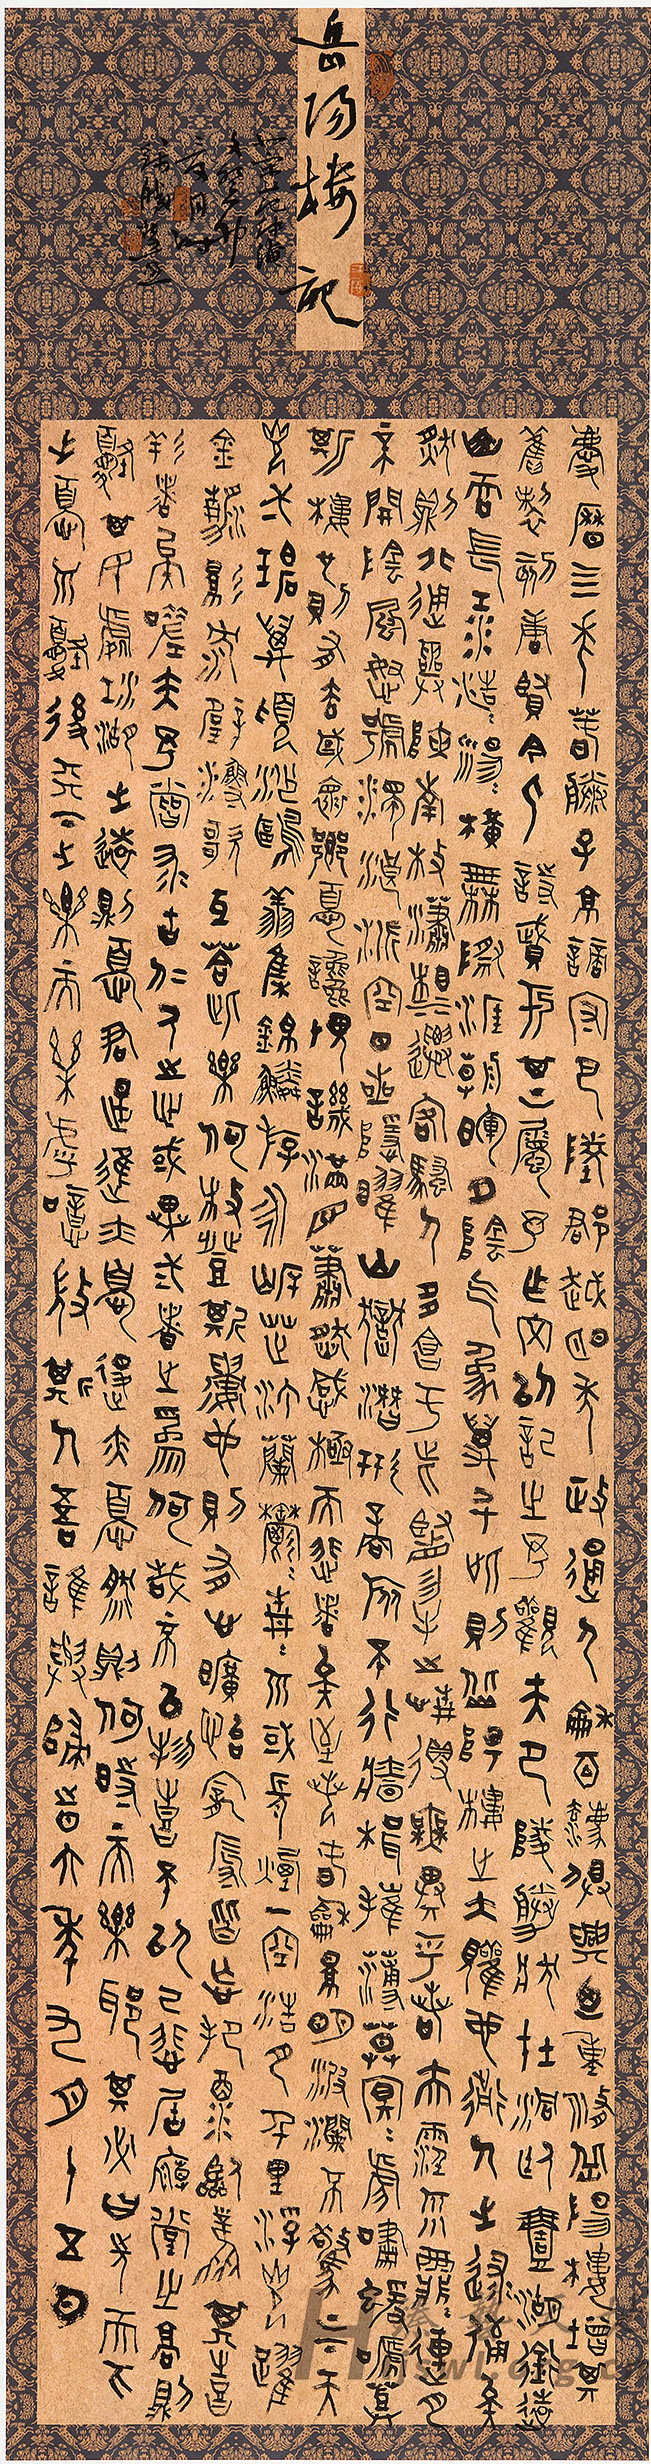 岳陽樓記
慶曆四年春滕子京謫守巴陵郡越明年政通人和百廢俱興乃重修岳陽樓增其
舊制刻唐賢今人詩賦於其上屬予作文以記之予觀夫巴陵勝狀在洞庭一湖銜遠
山吞長江浩浩湯湯橫無際涯朝暉夕陰氣象萬千此則岳陽樓之大觀也前人之述備矣
然則北通巫峽南極瀟湘遷客騷人多會於此覽物之情得無異乎若夫霪雨霏霏連月
不開陰風怒號濁浪排空日星隱曜山嶽潛形商旅不行檣傾楫摧薄暮冥冥虎嘯猿啼登
斯樓也則有去國懷鄉憂讒畏譏滿目蕭然感極而悲者矣至若春和景明波瀾不驚上下天
光一碧萬頃沙鷗翔集錦鱗游泳岸芷汀蘭鬱鬱青青而或長煙一空皓月千里浮光躍
金靜影沉璧漁歌互答此樂何極登斯樓也則有心曠神怡寵辱皆忘把酒臨風其喜
洋洋者矣嗟夫予嘗求古仁人之心或異二者之為何哉不以物喜不以己悲居廟堂之高則
憂其民處江湖之遠則憂其君是進亦憂退亦憂然則何時而樂耶其必曰先天下
之憂而憂後天下之樂而樂乎噫微斯人吾誰與歸時六年九月十五日